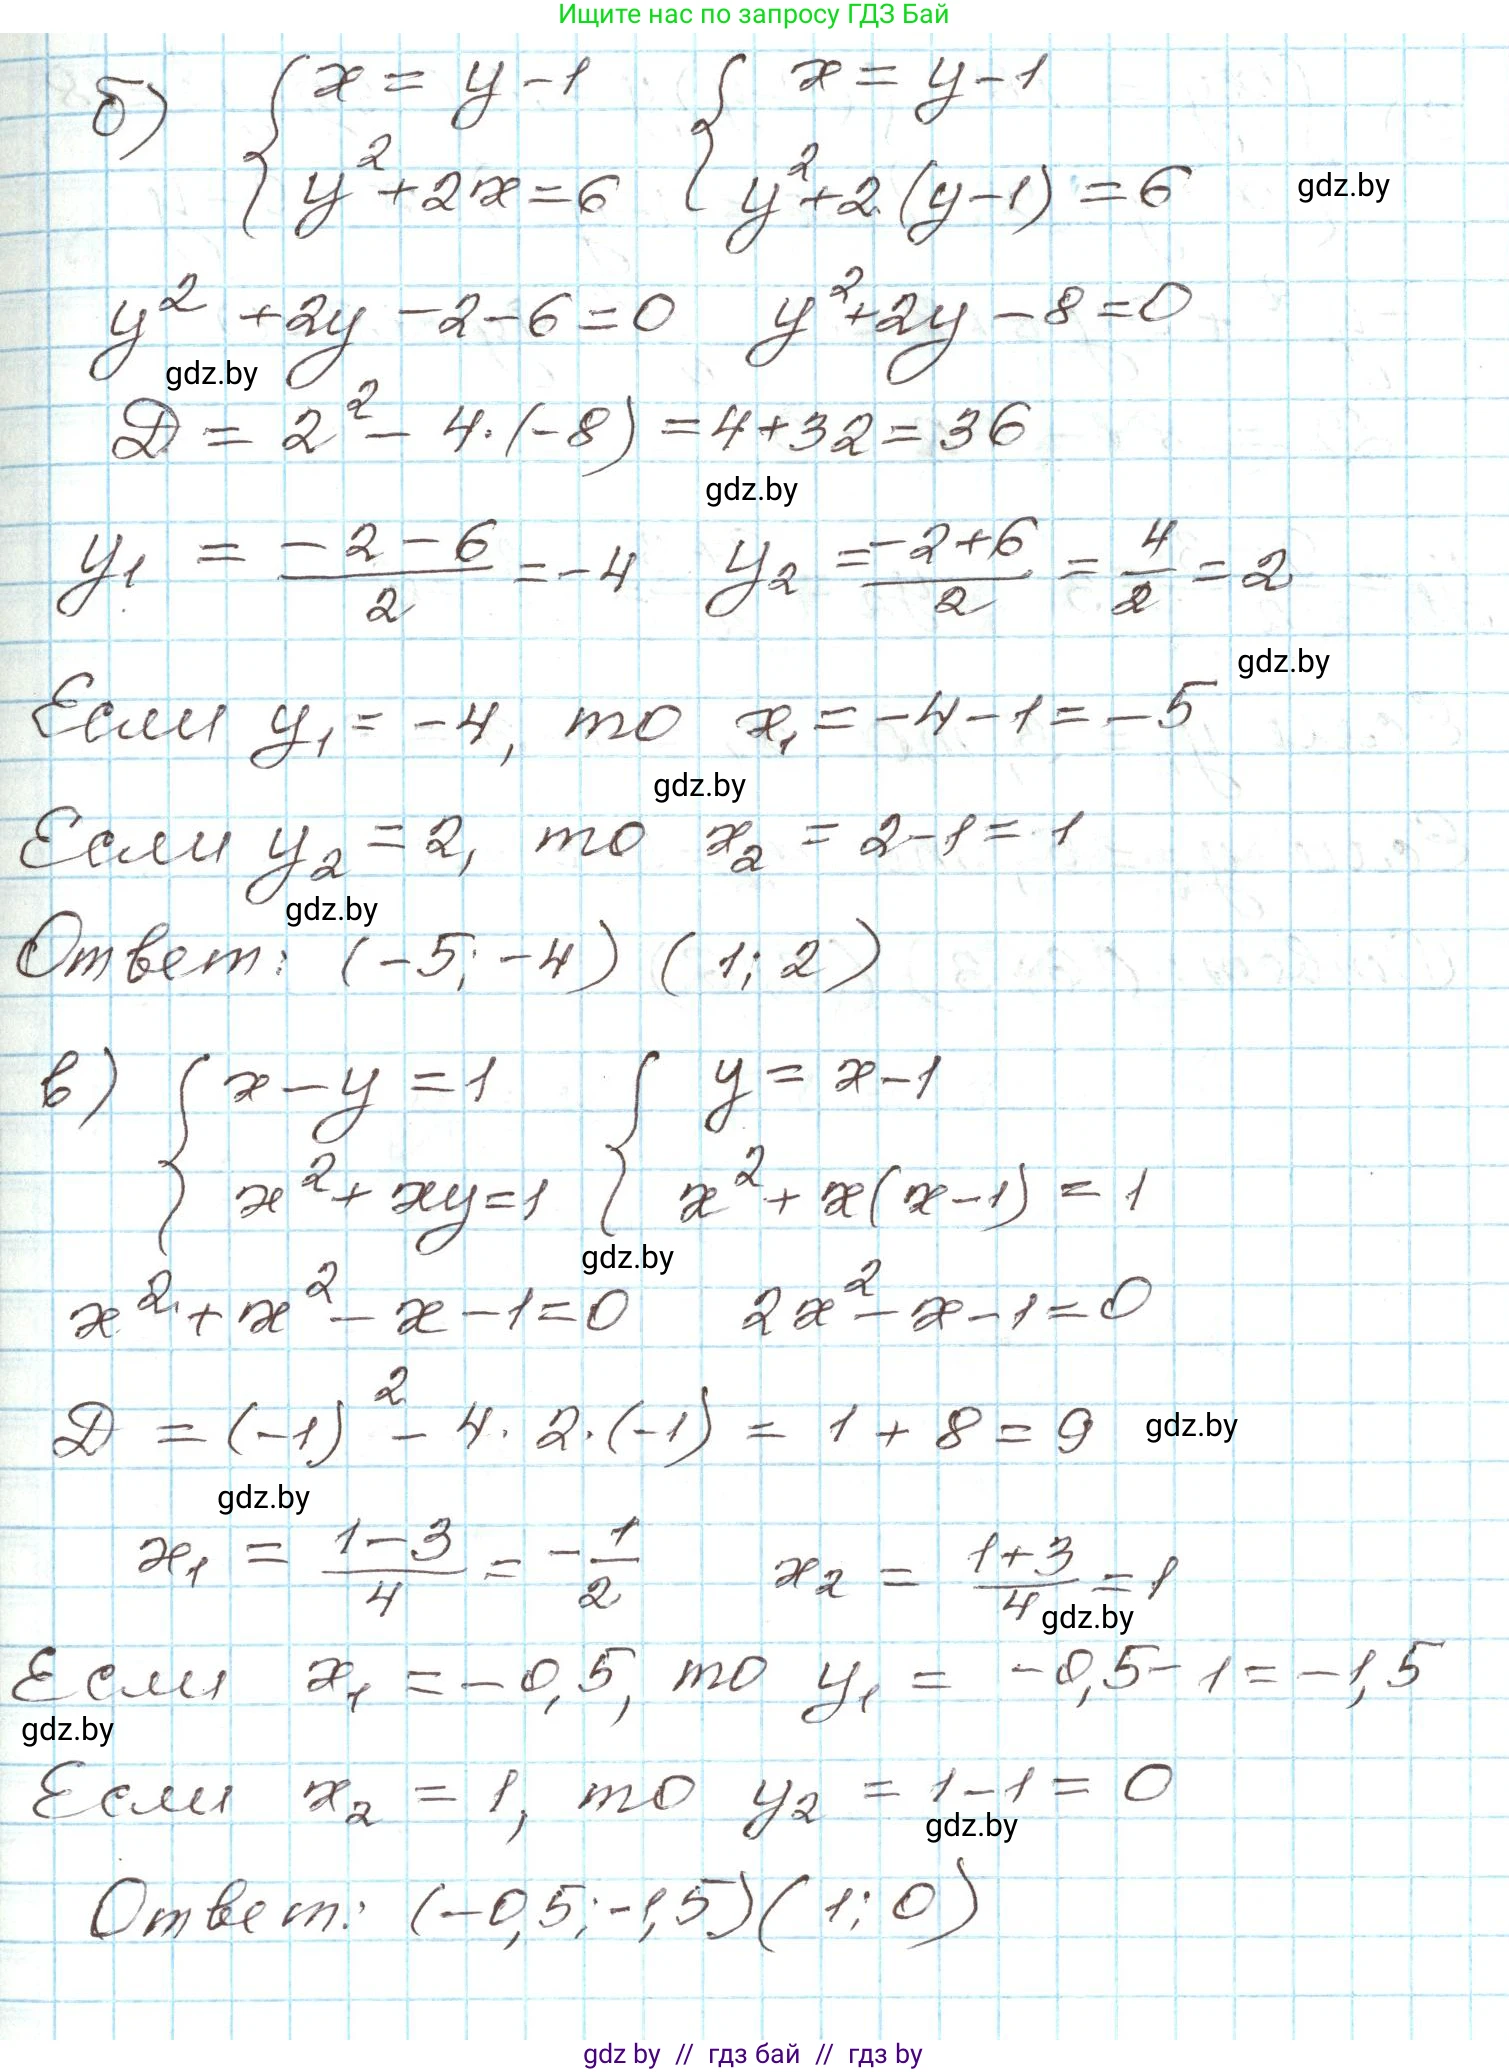 Ищите нас по запросу ГДЗ Бай
б) { x = y - 1 { x = y - 1
y² + 2x = 6 y² + 2 (y - 1) = 6 gdz.by
y² + 2y - 2 - 6 = 0 y² + 2y - 8 = 0
gdz.by
Д = 2² - 4 · (-8) = 4 + 32 = 36
gdz.by
y₁ = (-2 - 6)/2 = -4 y₂ = (-2 + 6)/2 = 4/2 = 2
gdz.by
Если y₁ = -4, то x₁ = -4 - 1 = -5
gdz.by
Если y₂ = 2, то x₂ = 2 - 1 = 1
gdz.by
Ответ: (-5; -4) (1; 2)
в) { x - y = 1 { y = x - 1
x² + xy = 1 x² + x(x - 1) = 1
gdz.by
x² + x² - x - 1 = 0 2x² - x - 1 = 0
Д = (-1)² - 4 · 2 · (-1) = 1 + 8 = 9 gdz.by
gdz.by
x₁ = (1 - 3)/4 = -1/2 x₂ = (1 + 3)/4 = 1
gdz.by
Если x₁ = -0,5, то y₁ = -0,5 - 1 = -1,5
gdz.by
Если x₂ = 1, то y₂ = 1 - 1 = 0
gdz.by
Ответ: (-0,5; -1,5) (1; 0)
gdz.by // гдз бай // гдз by